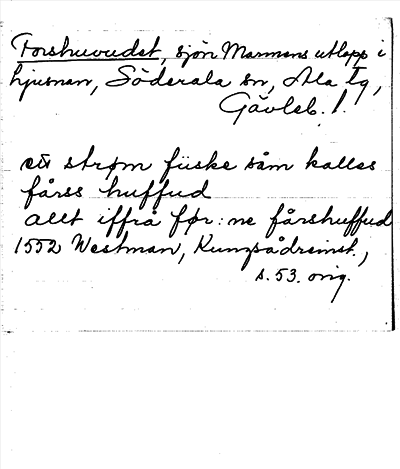 Forshuvudet, sjön Marmens utlopp i
Ljusnan, Söderala sn, Ala tg,
Gävleb. l.
ett strøm fiiske såm kalles
fårss huffud
allt iffrå før:ne fårshuffud
1552 Westman, Kungsådreinst.,
s. 53. orig.